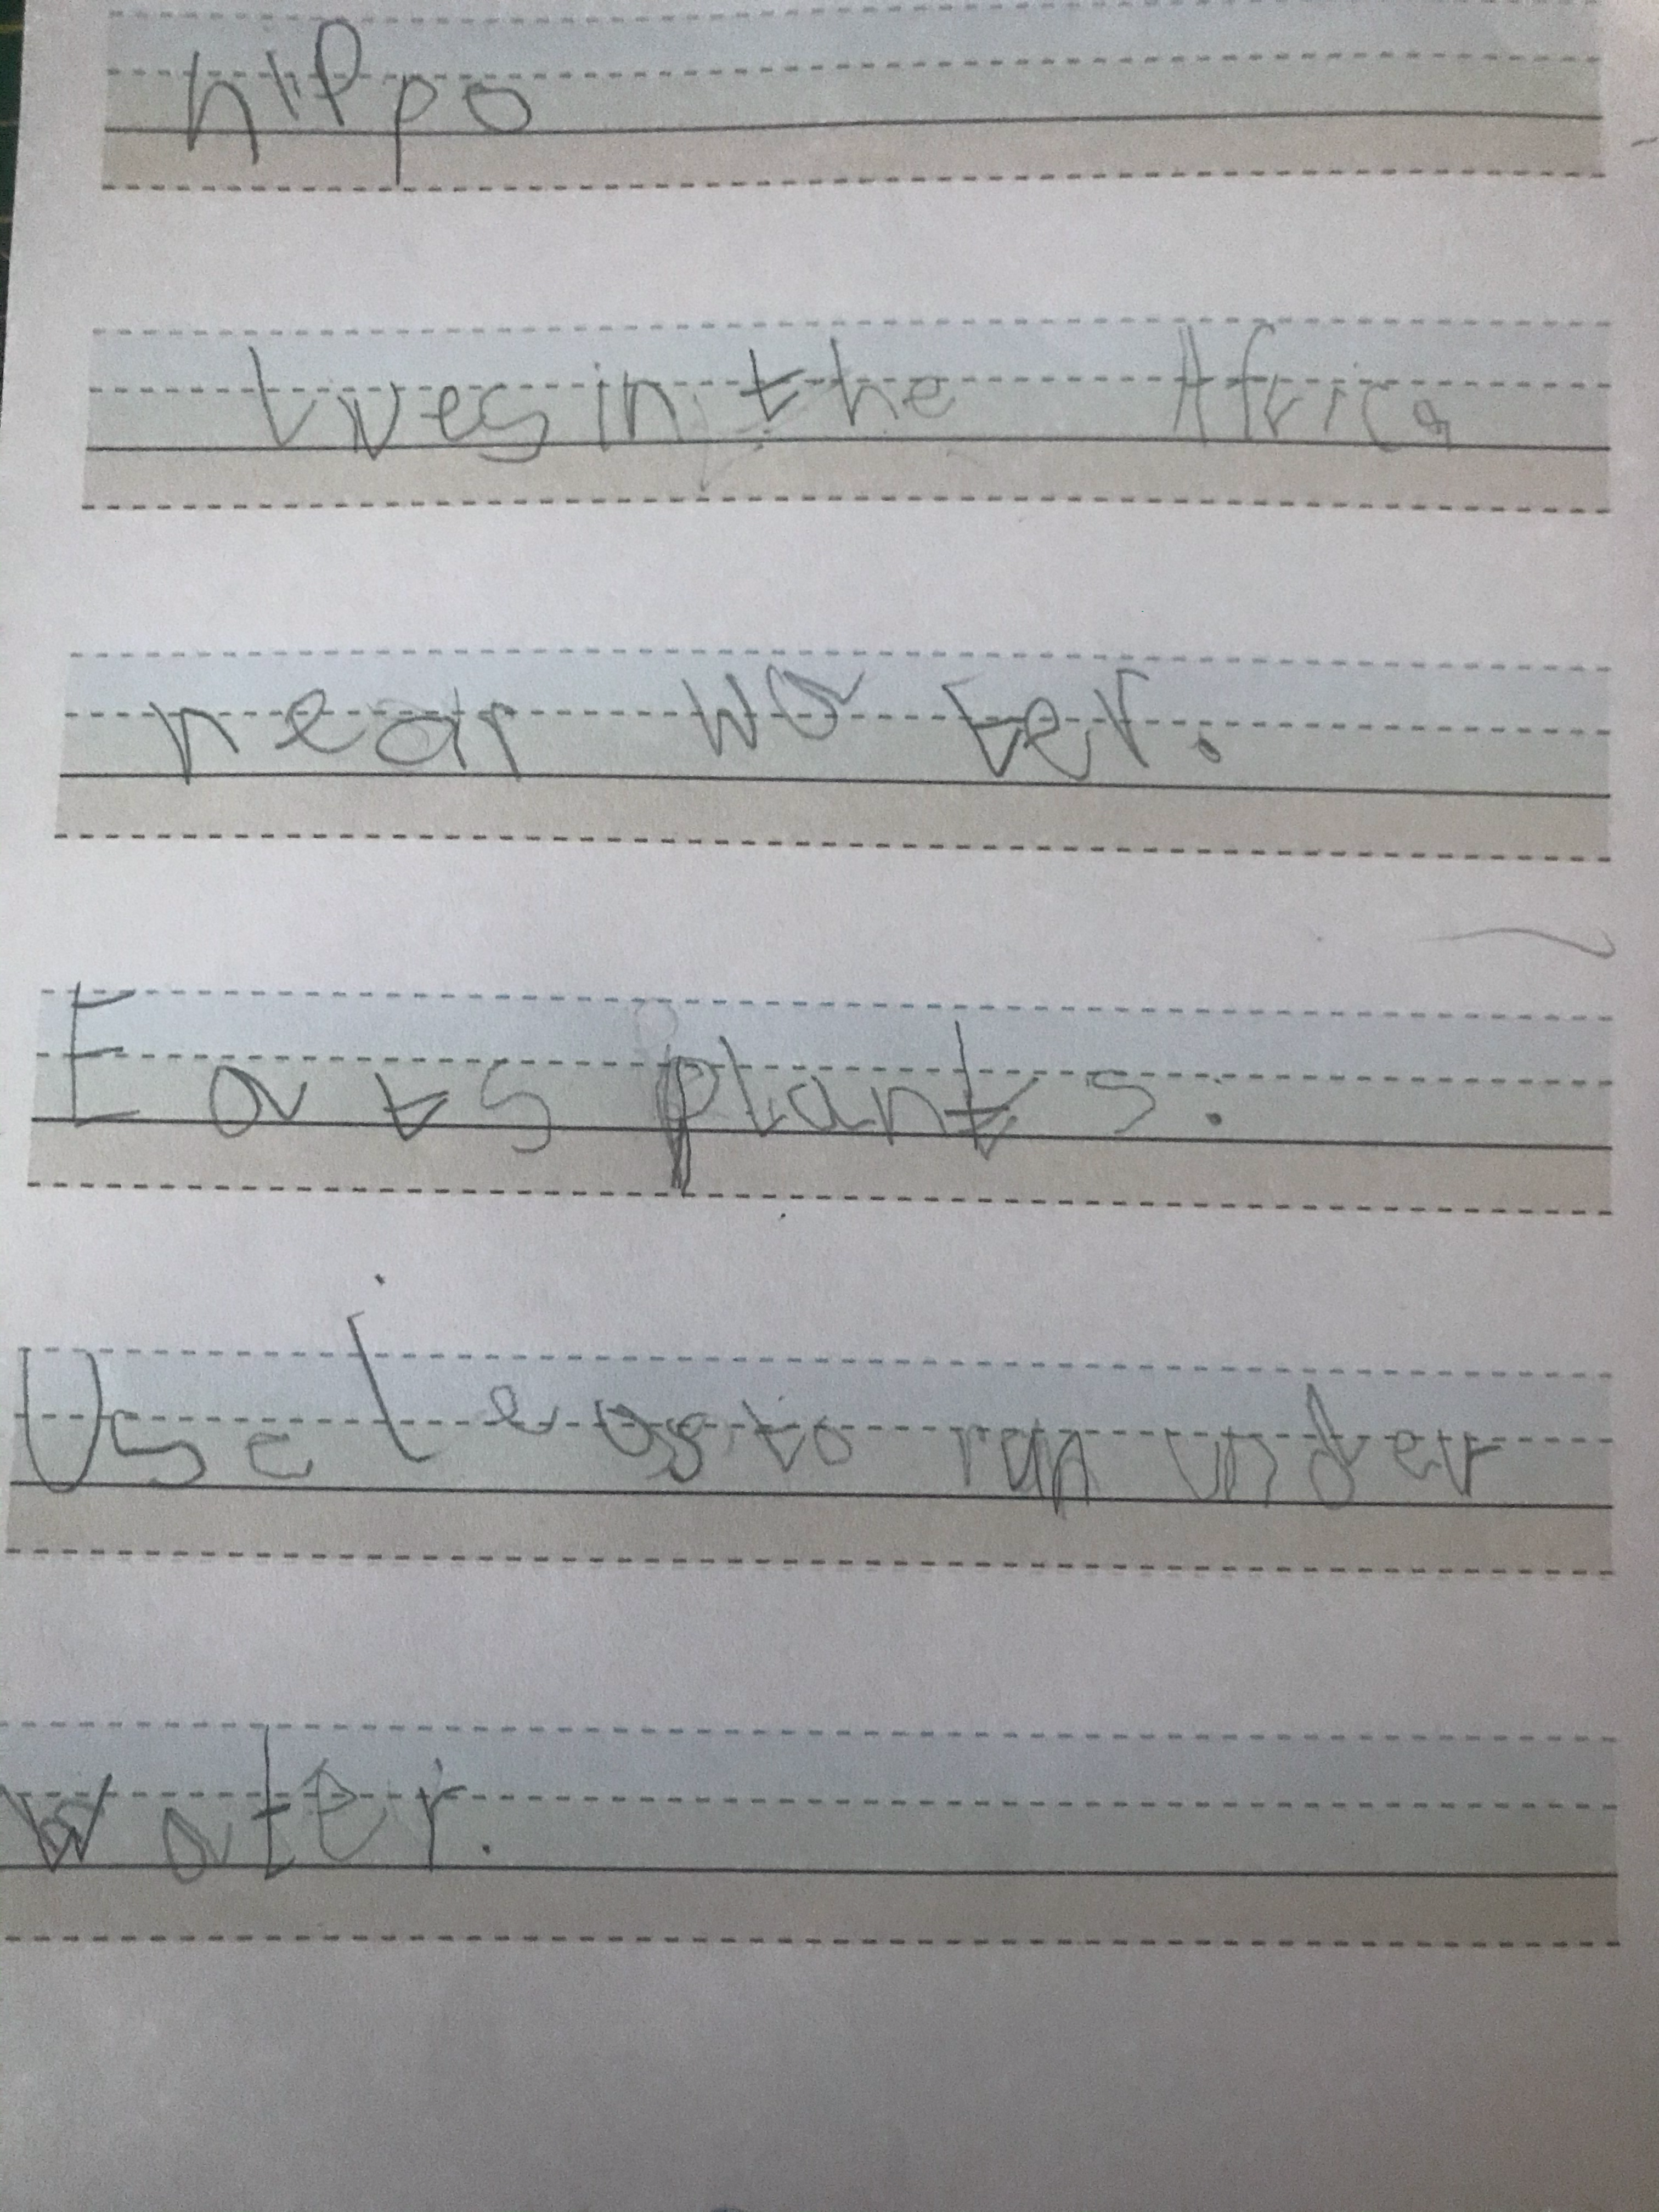 hippo
Lives in the Africa
near water.
Eats plants.
Use legs to run under
water.